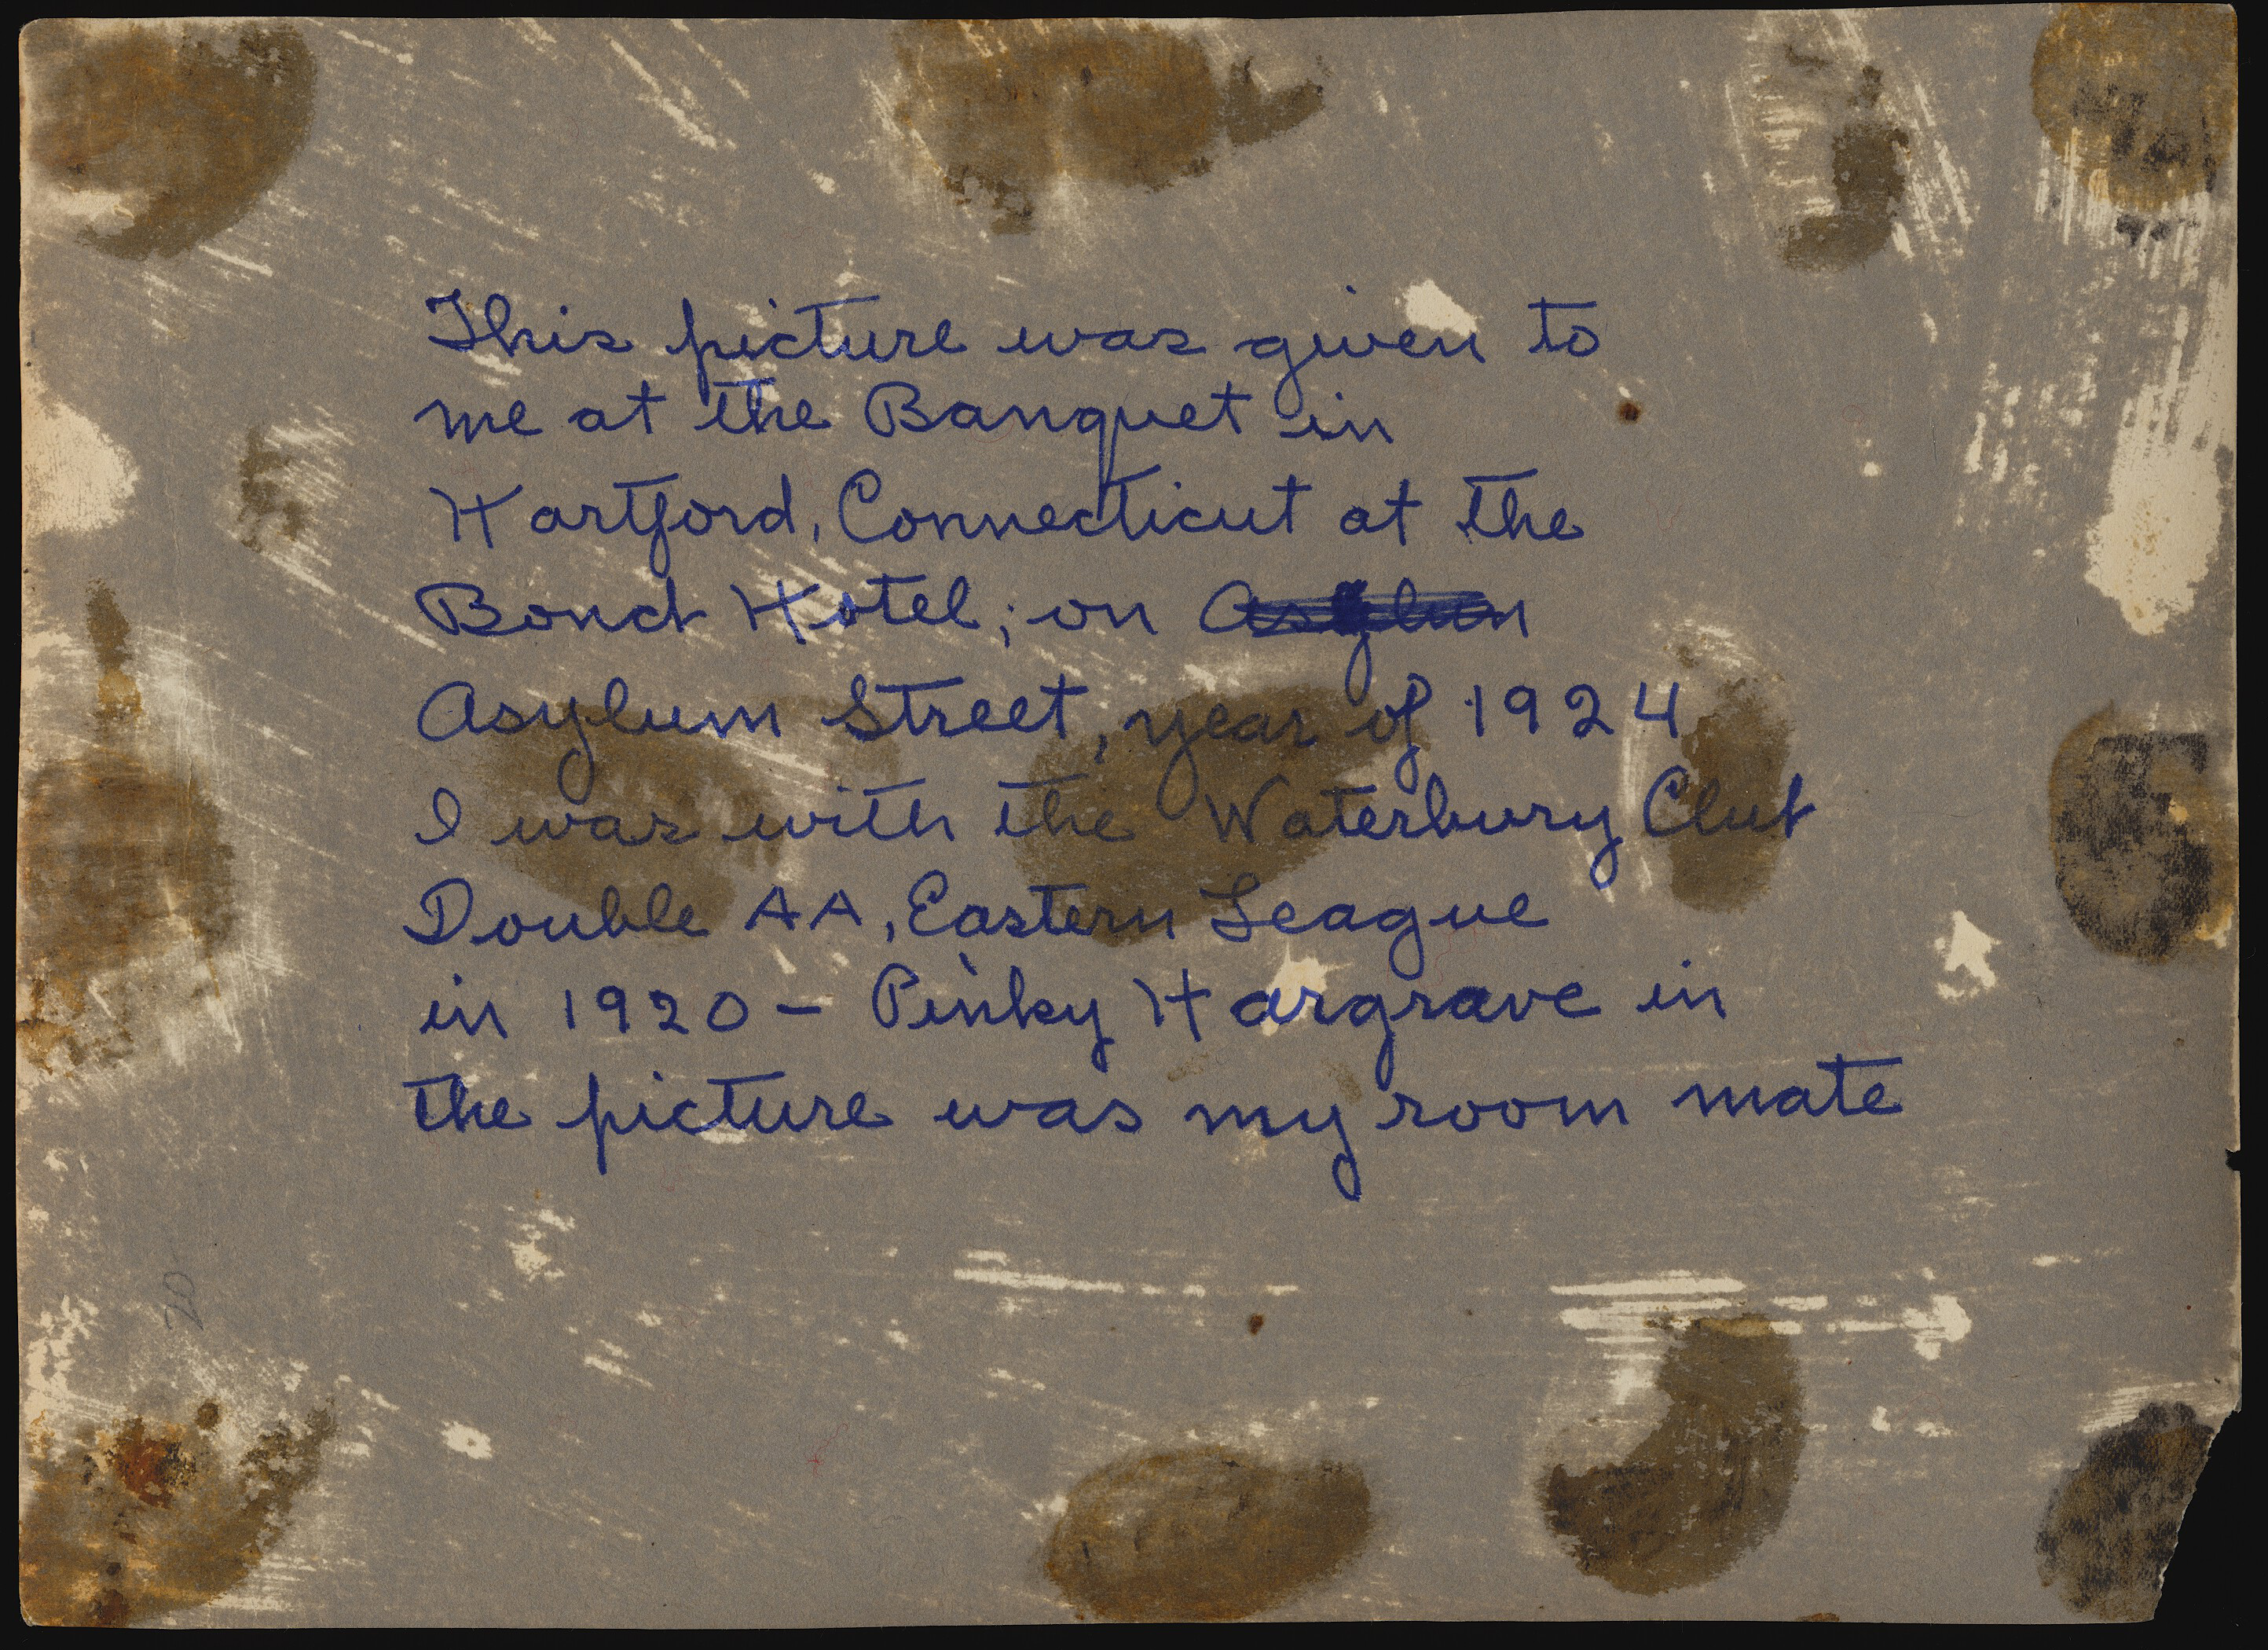 This picture was given to
me at the Banquet in
Hartford, Connecticut at the
Bond Hotel; on Asylum
Asylum Street, year of 1924
I was with the Waterbury Club
Double AA, Eastern League
in 1920 - Pinky Hargrave in
the picture was my room mate
20